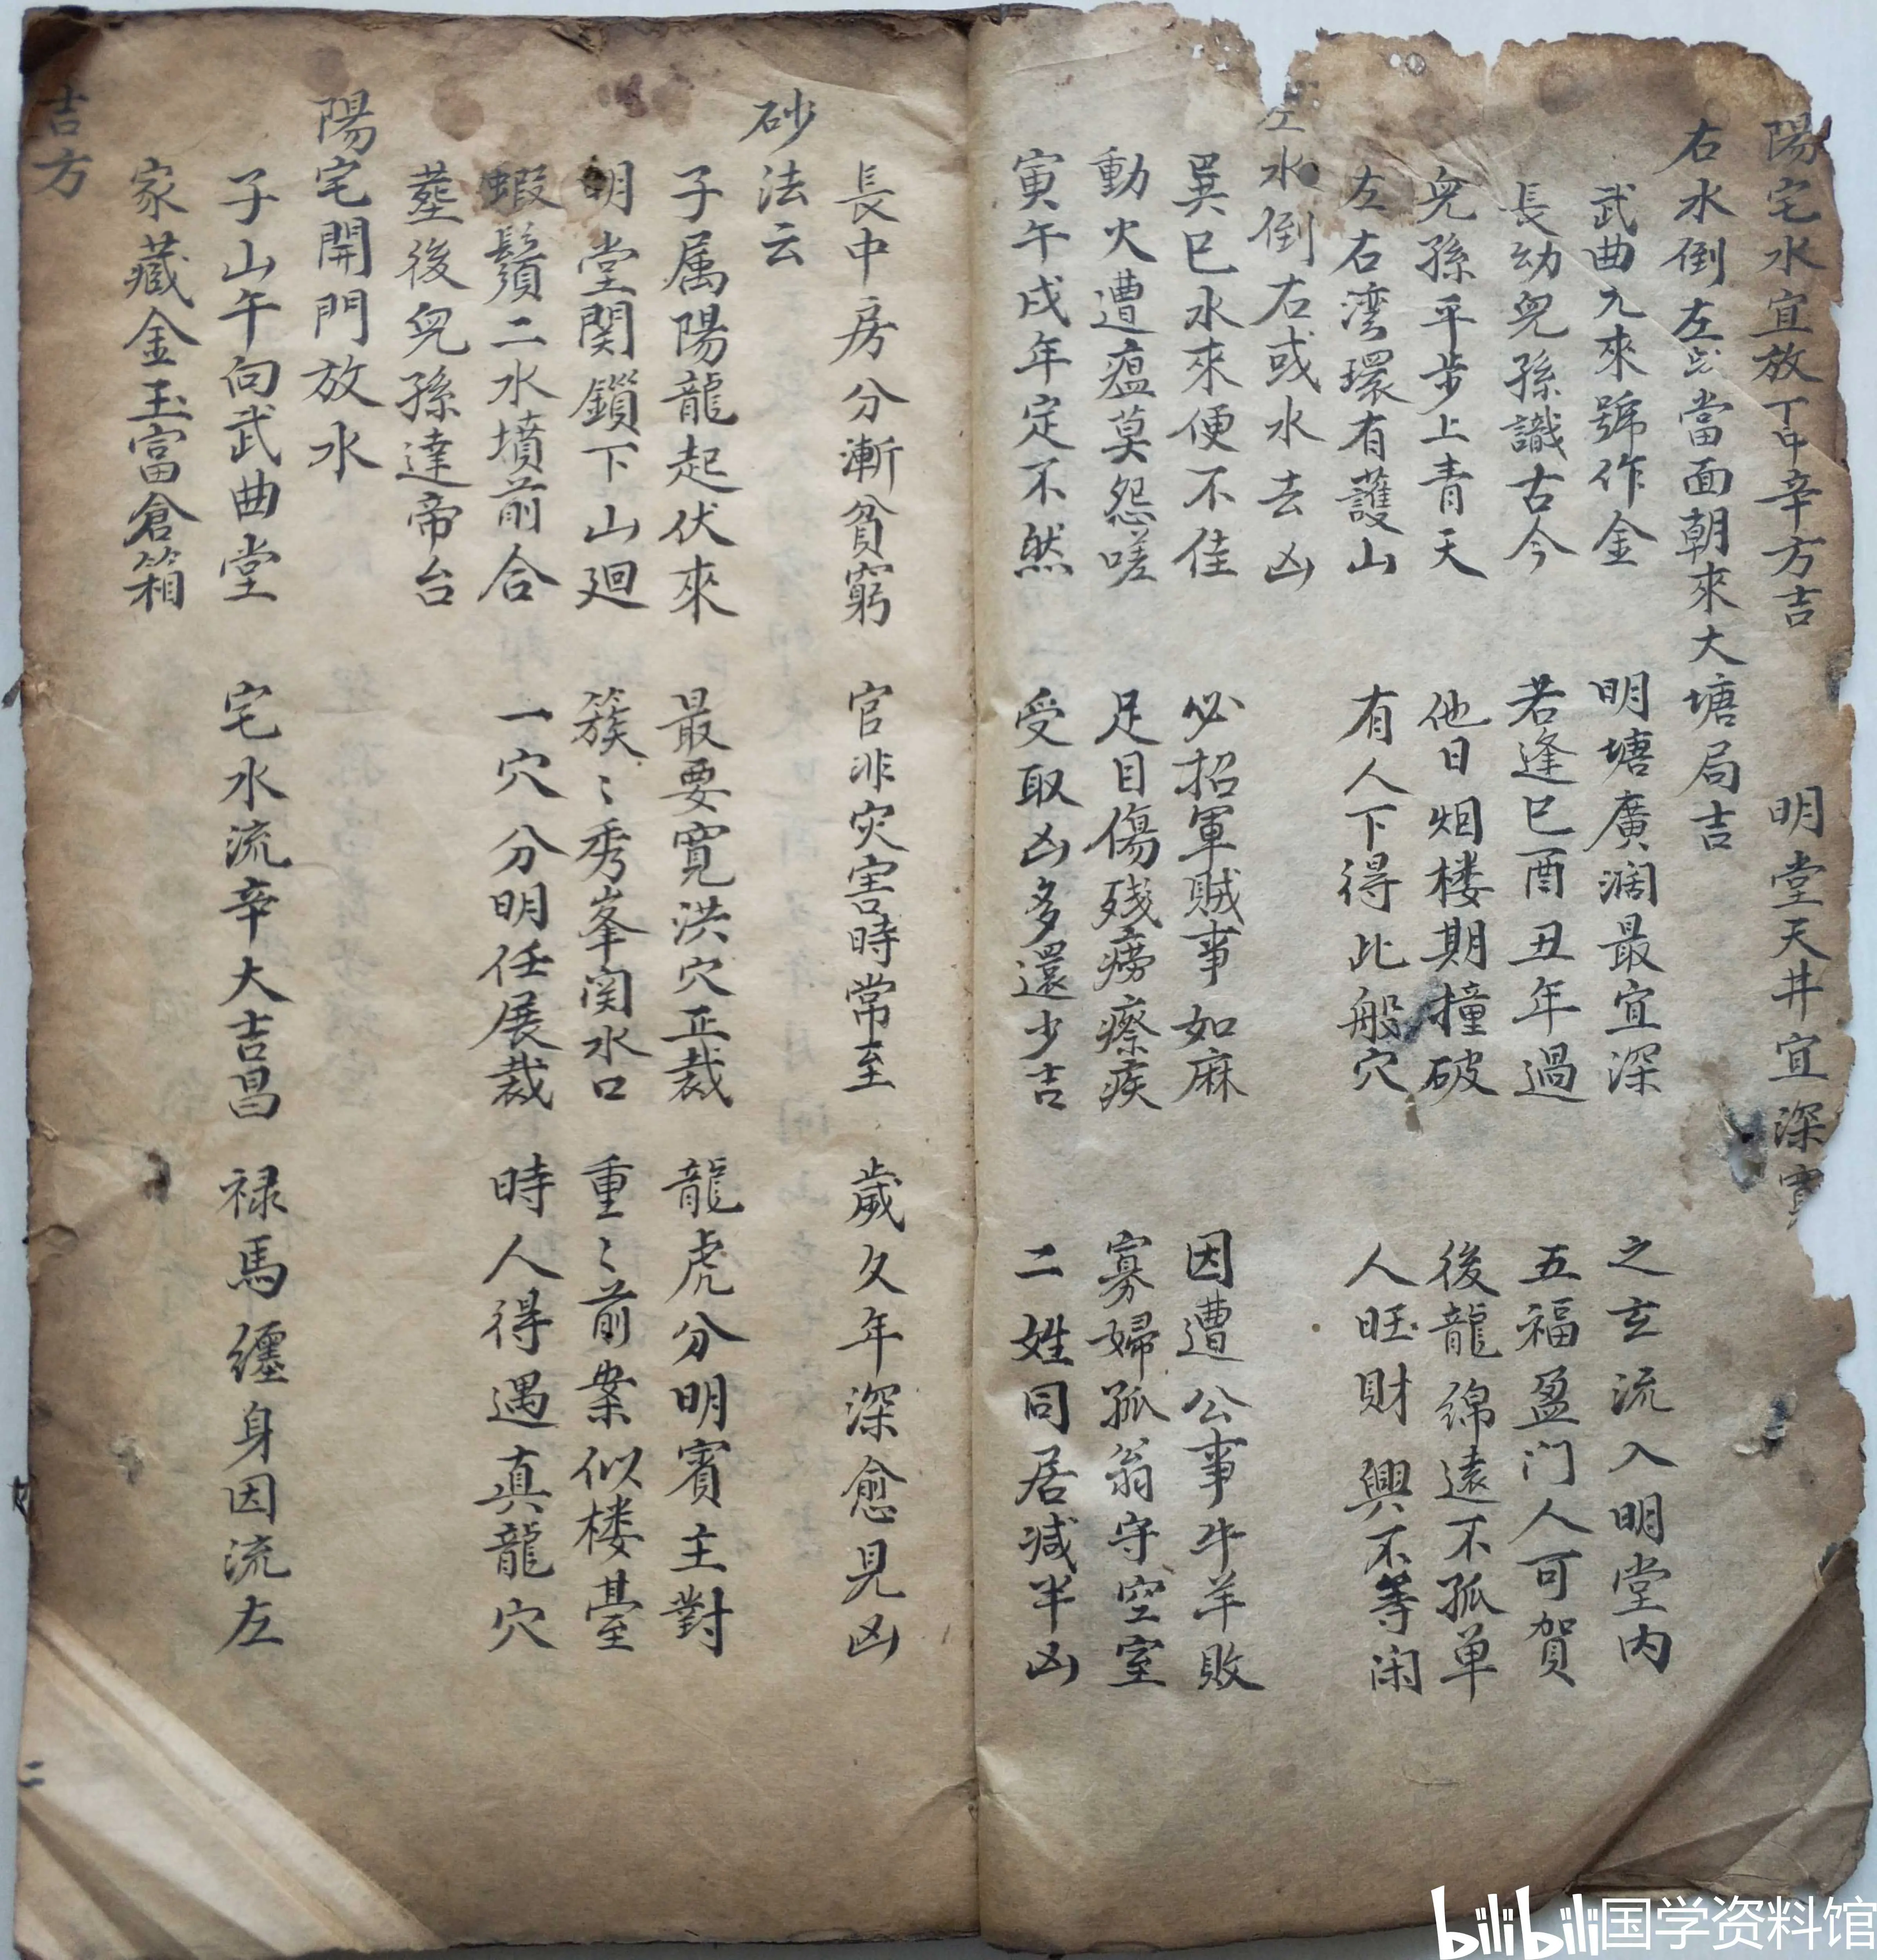 陽宅水宜放丁中辛方吉 明堂天井宜深
右水倒左或當面朝來大塘局吉
武曲九來號作金 明塘廣濶最宜深 之玄流入明堂内
長幼児孫識古今 若逢巳酉丑年過 五福盈门人可賀
児孫平步上青天 他日烟楼期撞破 後龍綿遠不孤单
左右湾環有護山 有人下得此般穴 人旺財興不等闲
左水倒右或水去凶
巽巳水來便不佳 必招軍賊事如麻 因遭公事牛羊敗
動火遭瘟莫怨嗟 足目傷残癆瘵疾 寡婦孤翁守空室
寅午戌年定不然 受取凶多還少吉 二姓同居减半凶
長中房分漸貧窮 官非灾害時常至 歲久年深愈見凶
砂法云
子属陽龍起伏來 最要寬洪穴正裁 龍虎分明賓主對
明堂関鎖下山廻 簇〻秀峯関水口 重〻前案似楼臺
蝦鬚二水墳前合 一穴分明任展裁 時人得遇真龍穴
塟後児孫達帝台
陽宅開門放水
子山午向武曲堂 宅水流辛大吉昌 禄馬纒身因流左
家藏金玉富倉箱
吉方
二
bilibili国学资料馆